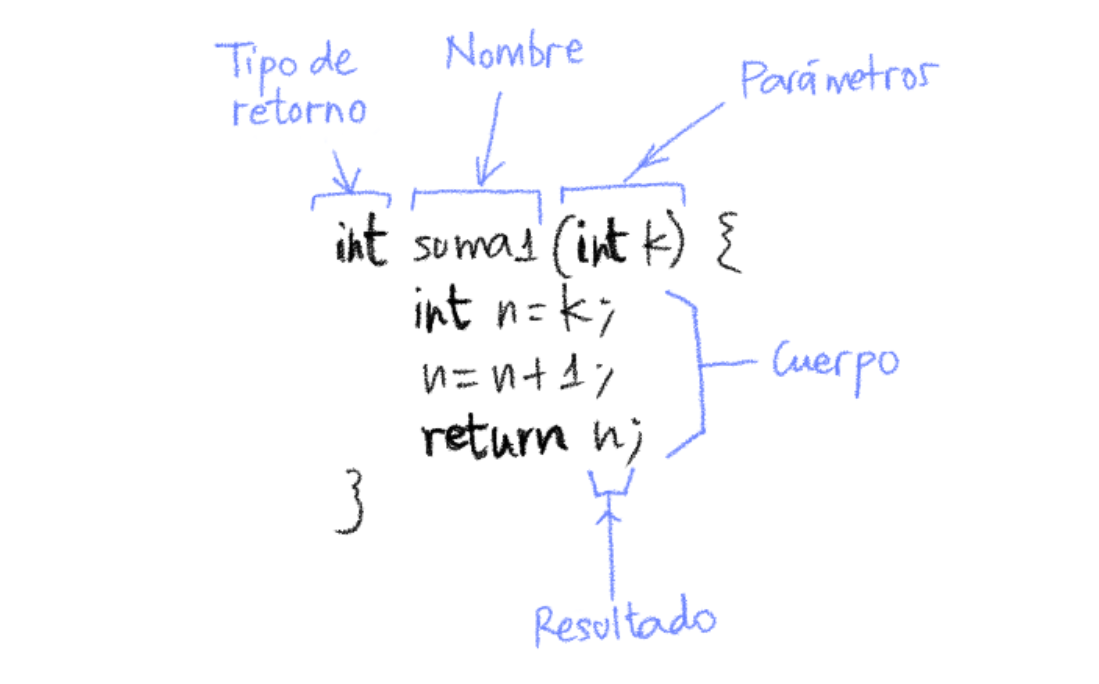 Tipo de
retorno
Nombre
Parámetros
int suma1 (int k) {
int n = k;
n = n + 1;
return n;
}
Cuerpo
Resultado